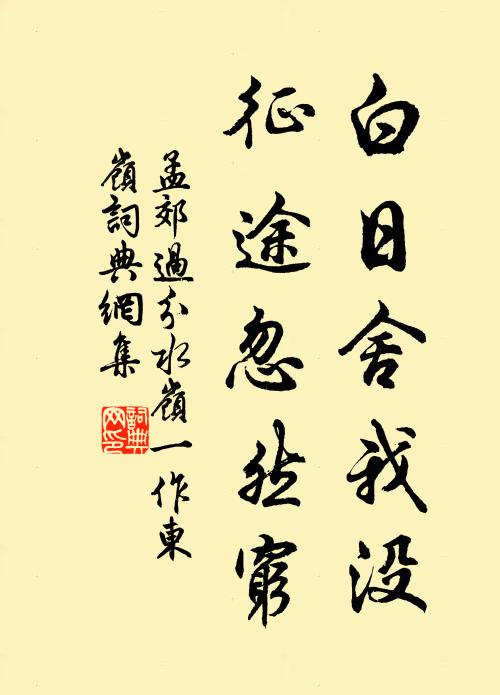 白日舍我没
征途忽然窮
孟郊過分水嶺一作東
嶺詞典網集
詞典
网印